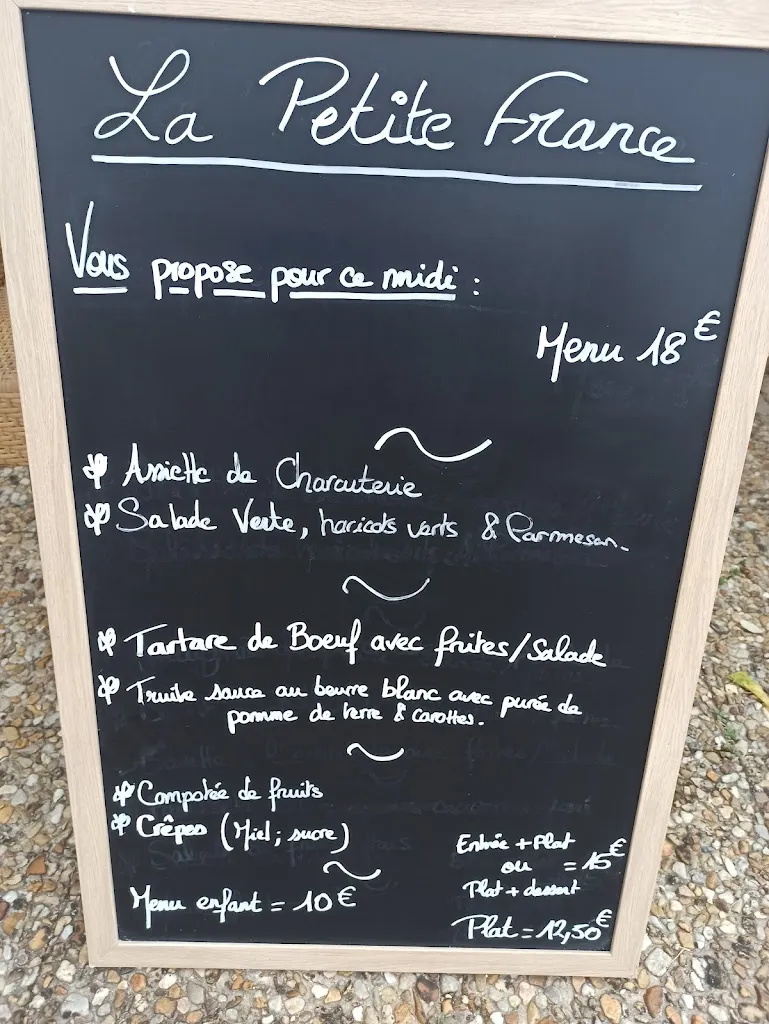 La Petite France
Vous propose pour ce midi :
Menu 18€
Assiette de Charcuterie
Salade Verte, haricots verts & Parmesan.
Tartare de Boeuf avec frites/Salade
Truite sauce au beurre blanc avec purée de
pomme de terre & carottes.
Compotée de fruits
Crêpes (Miel; sucre)
Entrée + Plat
ou = 15€
Plat + dessert
Menu enfant = 10€
Plat = 12,50€